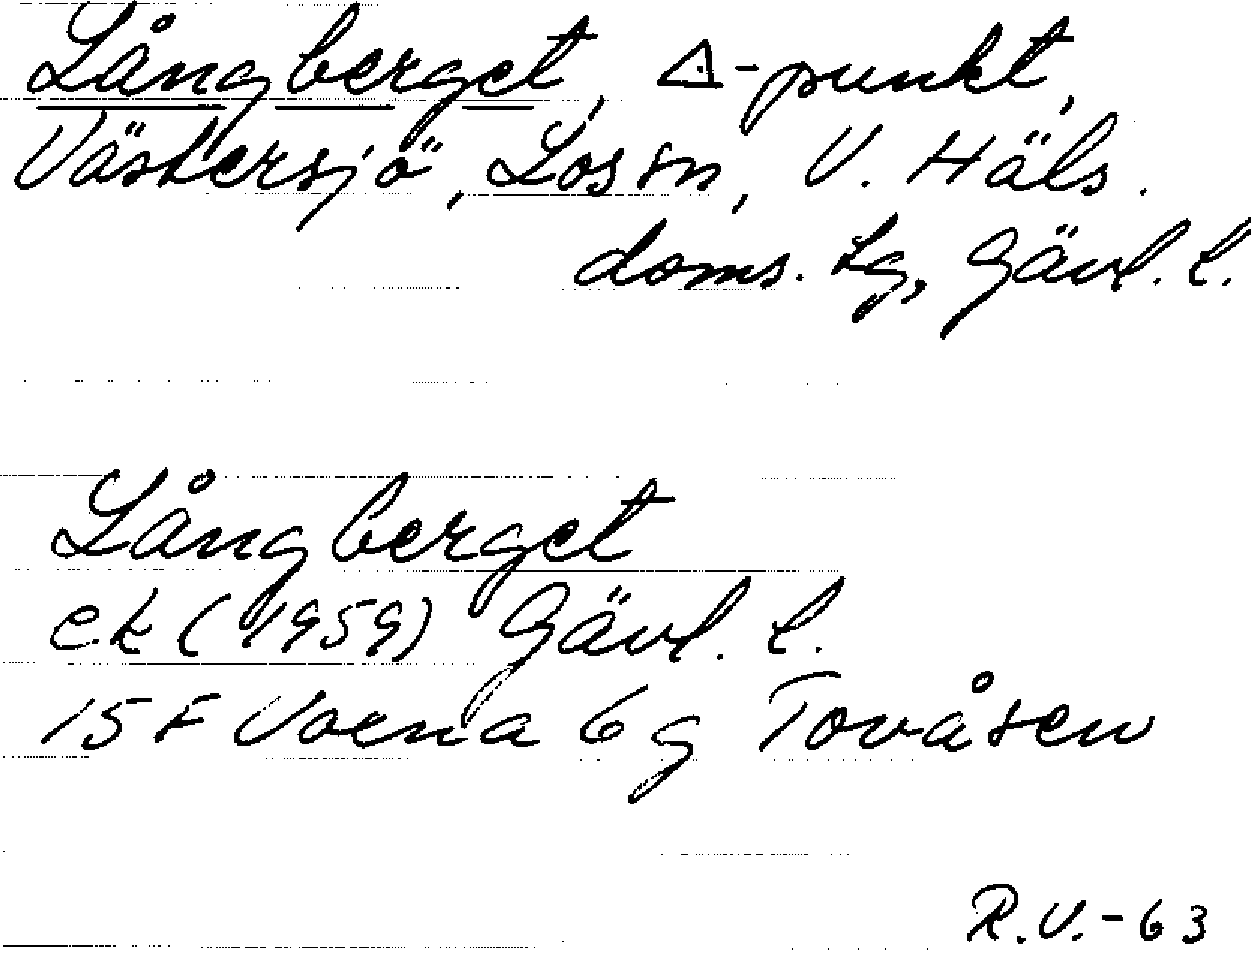 Långberget, △-punkt,
Västersjö, Los sn, V. Häls.
doms. Lg, Gävl. l.
Långberget
ek (1959) Gävl. l.
15 F Voxna 6 g Tovåsen
R.V.-63